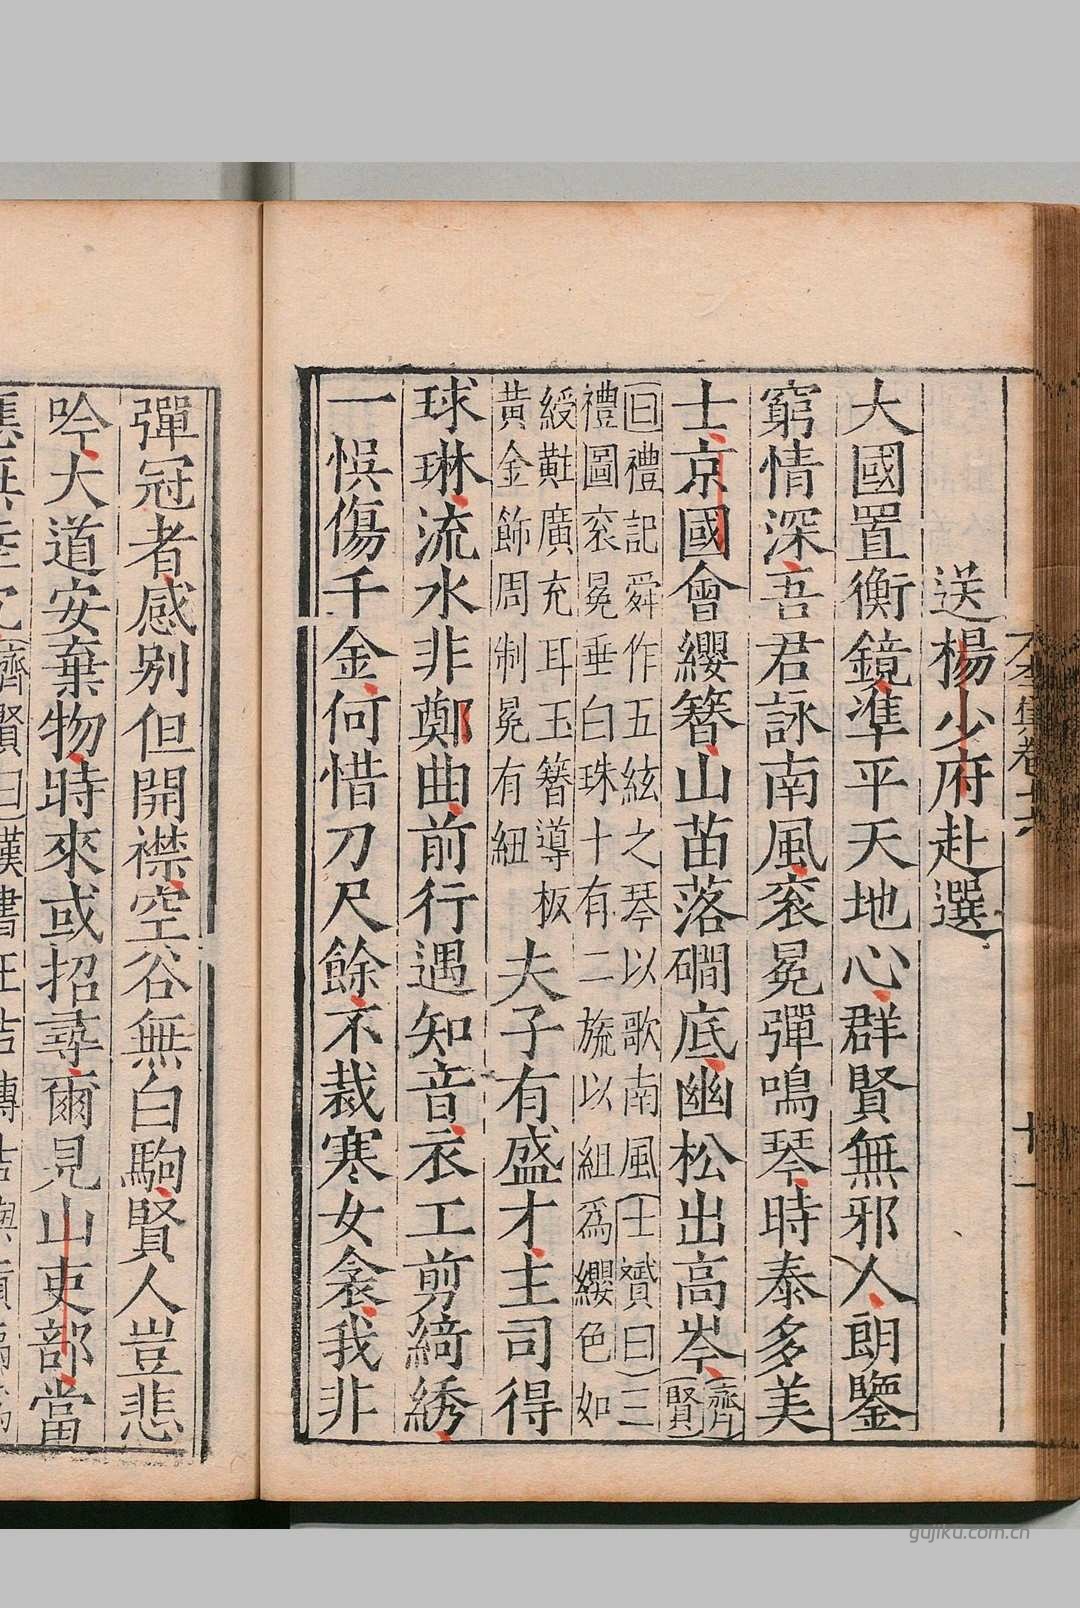 送楊少府赴選
大國置衡鏡準平天地心群賢無邪人朗鑒
窮情深吾君詠南風衮冕彈鳴琴時泰多美
士京國會纓簪山苗落磵底幽松出高岑齊賢
曰禮記舜作五絃之琴以歌南風士贇曰三
禮圖衮冕垂白珠十有二旒以組爲纓色如
綬黈廣充耳玉簪導板
黃金飾周制冕有紐
夫子有盛才主司得
球琳流水非鄭曲前行遇知音衣工剪綺綉
一悞傷千金何惜刀尺餘不裁寒女衾我非
彈冠者感别但開襟空谷無白駒賢人豈悲
吟大道安棄物時來或招尋爾見山吏部當
應無陸沉齊賢曰漢書王吉傳吉與貢
gujiku.com.cn